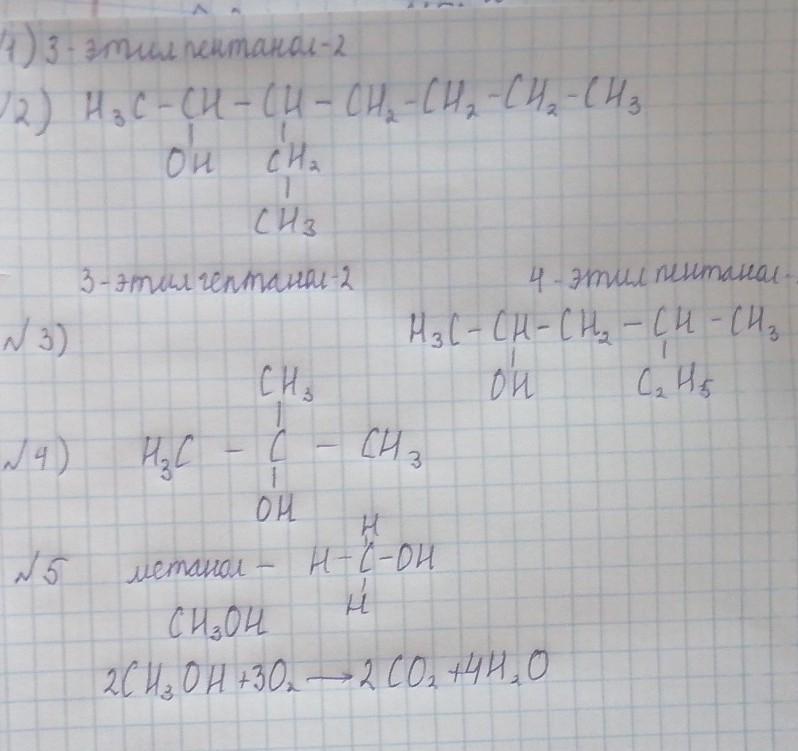 1) 3-этилпентанол-2
2) H₃C - CH - CH - CH₂ - CH₂ - CH₂ - CH₃
OH CH₂
CH₃
3-этилгептанол-2 4-этилпентанол-
№3) H₃C - CH - CH₂ - CH - CH₃
OH C₂H₅
CH₃
№4) H₃C - C - CH₃
OH
H
№5 метанол - H - C - OH
H
CH₃OH
2CH₃OH + 3O₂ → 2CO₂ + 4H₂O